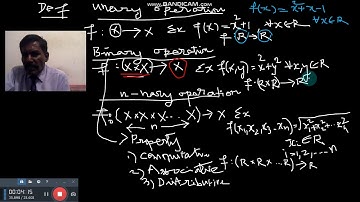 WWW.BANDICAM.COM
Def Unary operation f(x) = x²+x-1 ∀x∈R
f: X → X Ex f(x) = x²+1 ∀x∈R
f: R → R
Binary operation
f: (X×X) → X Ex f(x,y) = x²+y² ∀x,y∈R
f: (R×R) → R
n-nary operation
f: (X×X×X×...X) → X Ex
← n → f(x₁,x₂,x₃...xₙ) = √x₁²+x₂²+...x²ₙ
Property xᵢ∈R
i=1,2,...n
1) Commutative f: (R×R×...R) → R
2) Associative
3) Distributive
00:04:15